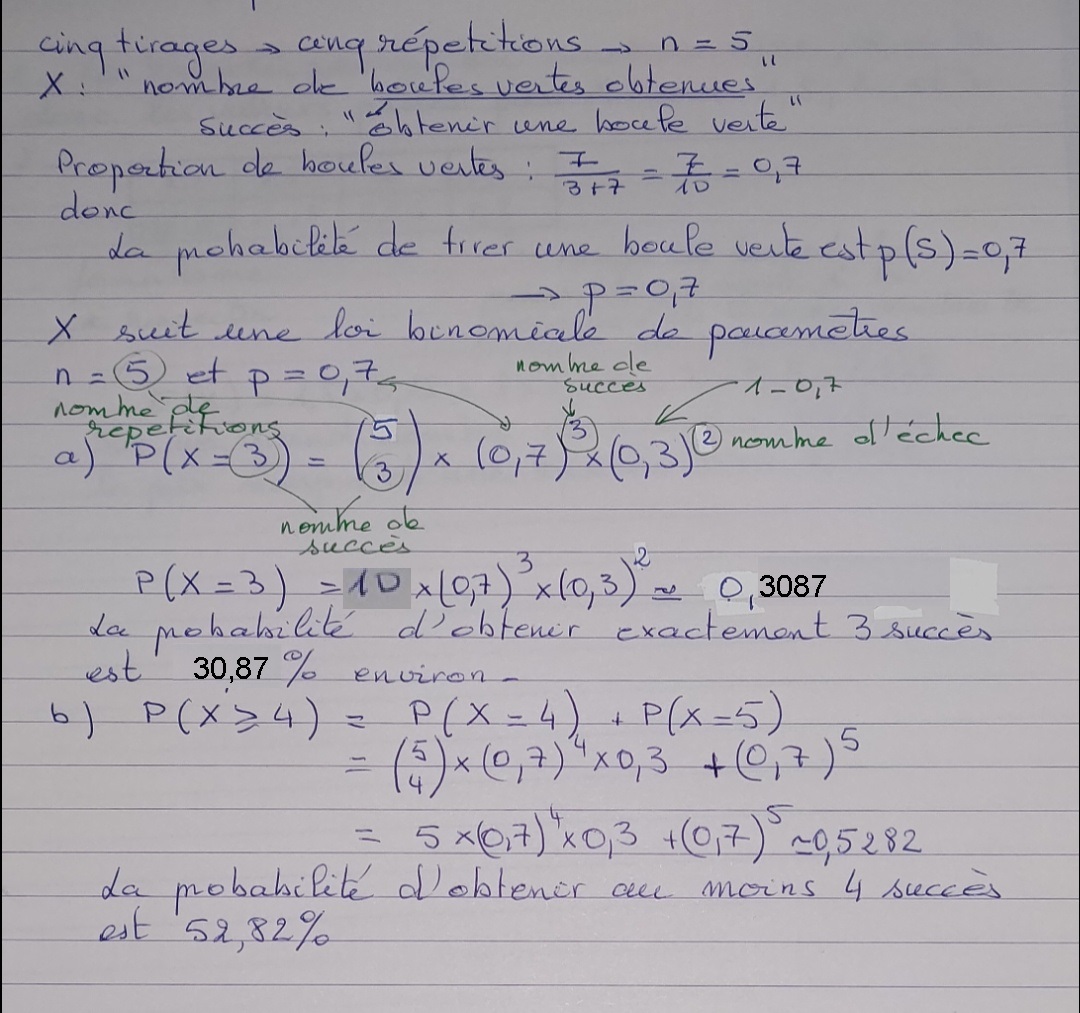 cinq tirages → cinq répetitions → n = 5
X : "nombre de boules vertes obtenues"
succès : "obtenir une boule verte"
Proportion de boules vertes : 7/(3+7) = 7/10 = 0,7
donc
La probabilité de tirer une boule verte est p(S) = 0,7
→ p = 0,7
X suit une loi binomiale de paramètres
n = 5 et p = 0,7
nombre de succès
1 - 0,7
nombre de repetitions
a) P(X = 3) = (5 3) × (0,7)^3 × (0,3)^2 nombre d'échec
nombre de succès
P(X = 3) = 10 × (0,7)^3 × (0,3)^2 ≃ 0,3087
La probabilité d'obtenir exactement 3 succès
est 30,87 % environ -
b) P(X ⩾ 4) = P(X = 4) + P(X = 5)
= (5 4) × (0,7)^4 × 0,3 + (0,7)^5
= 5 × (0,7)^4 × 0,3 + (0,7)^5 ≃ 0,5282
La probabilité d'obtenir au moins 4 succès
est 52,82%